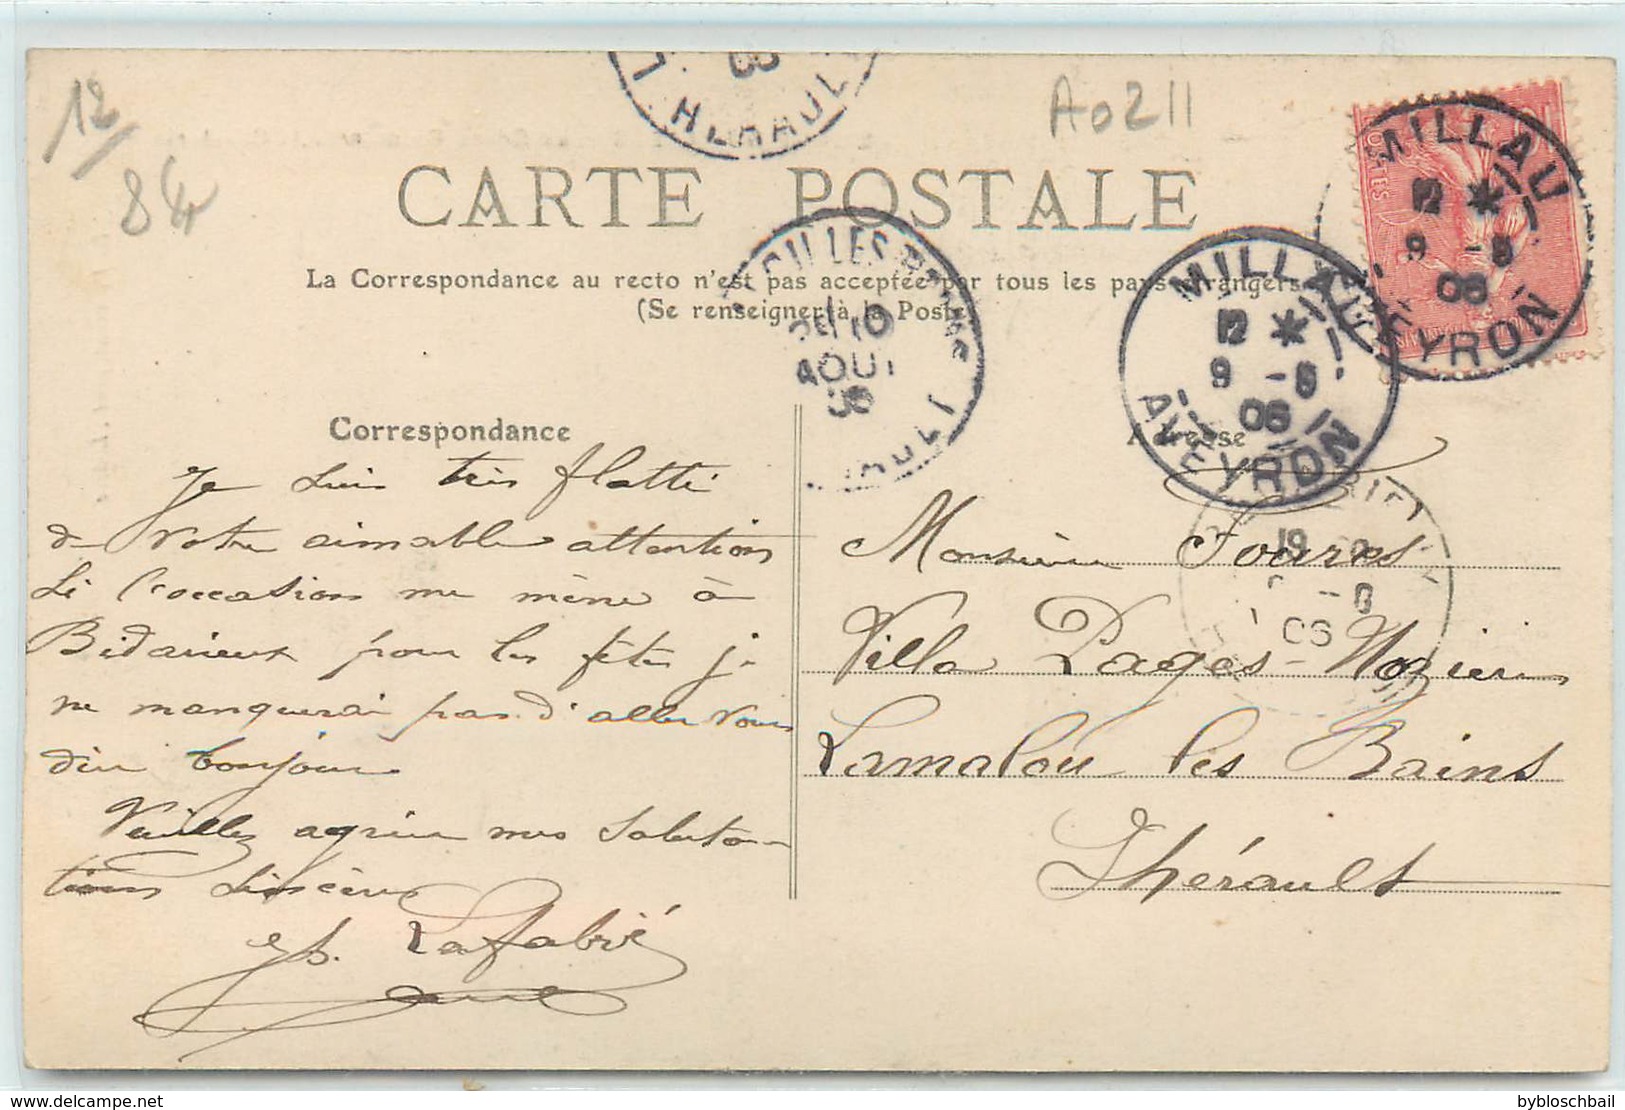 12/
84
A0211
HERAULT
CARTE POSTALE
La Correspondance au recto n'est pas acceptée par tous les pays étrangers
(Se renseigner à la Poste)
MILLAU
12 *
9 - 8
06
AVEYRON
MILLAU
12 *
9 - 8
06
AVEYRON
10
AOUT
06
Correspondance
Adresse
Je suis très flatté
de votre aimable attention
Si l'occasion me mène à
Bédarieux pour les fêtes je
ne manquerai pas d'aller vous
dire bonjour
Veuillez agréer mes saluta-
tions sincères
Lafabrié
Monsieur Foures
Villa Pagès-Nozier
Lamalou les Bains
Lhérault
bybloschbail